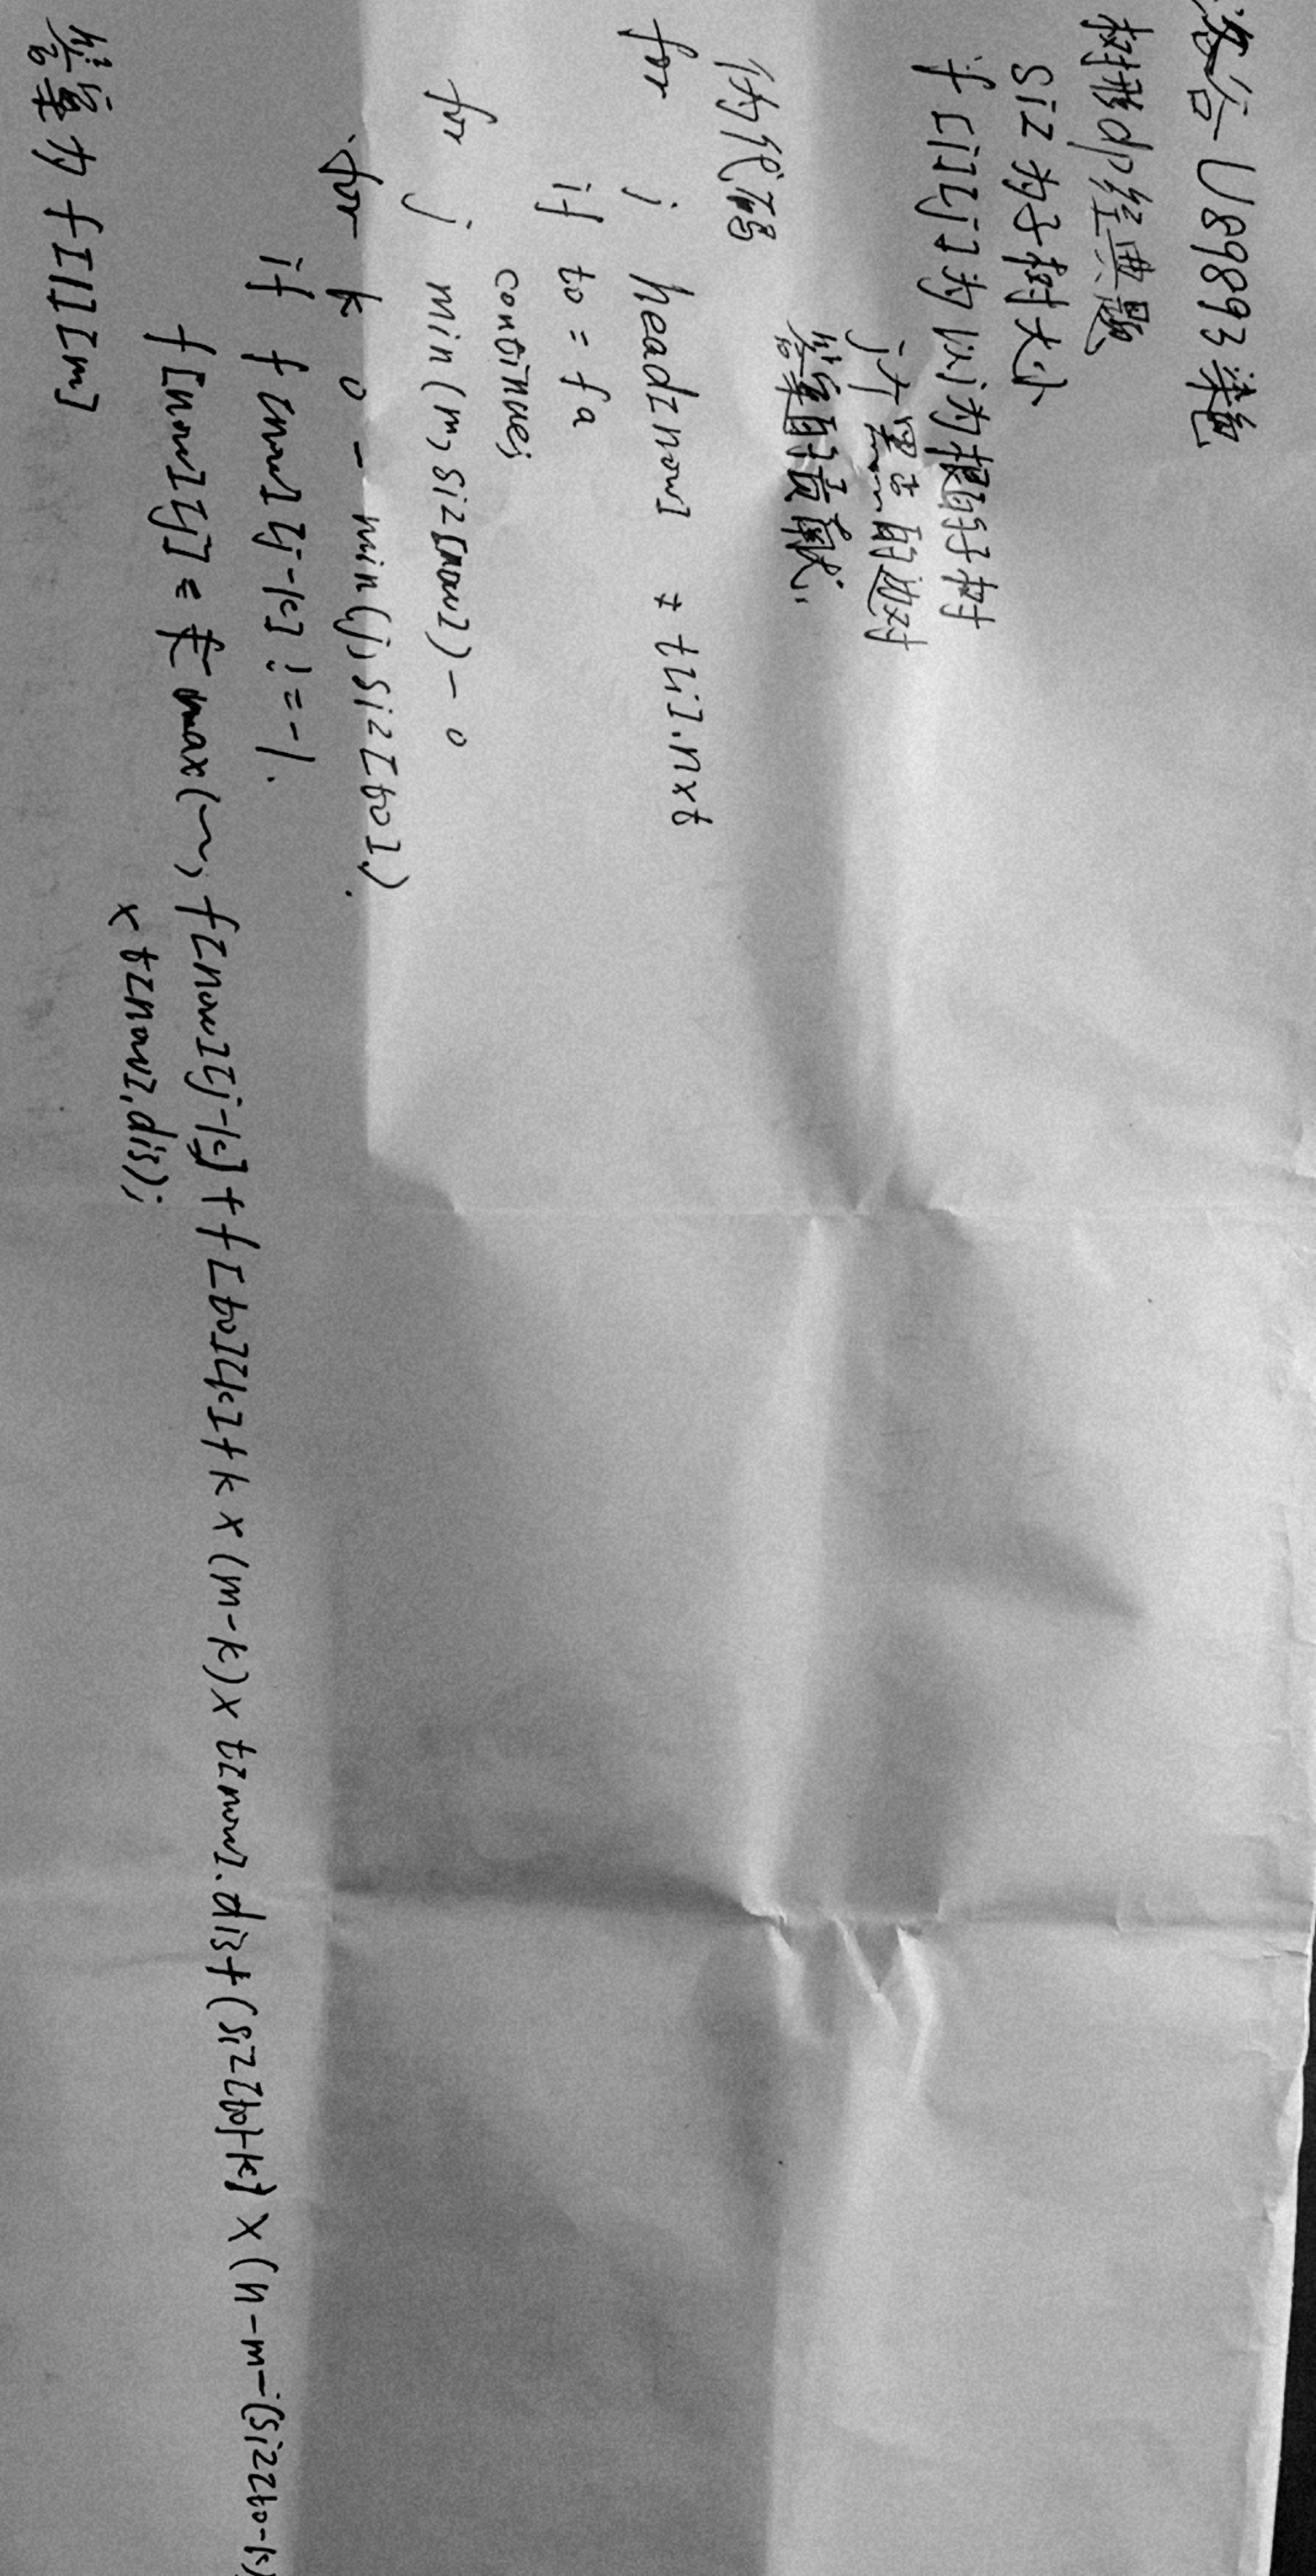 洛谷 U89893 染色
树形dp经典题
siz 为子树大小
f[i][j]为以i为根的子树
j个黑点的边对
答案的贡献.
伪代码
for i head[now] → t[i].nxt
if to = fa
continue;
for j min(m, siz[now]) - 0
for k 0 - min(j, siz[to])
if f[now][j-k] != -1.
f[now][j] = max(~, f[now][j-k] + f[to][k] + k × (m-k) × t[now].dis + (siz[to]-k) × (n-m-(siz[to-k)
× t[now].dis);
答案为 f[1][m]